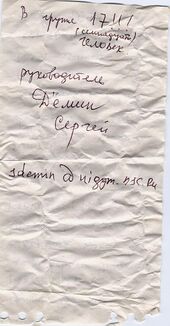 В группе 17!!!
(семнадцать)
человек
руководитель
Дёмин
Сергей
sdemin@